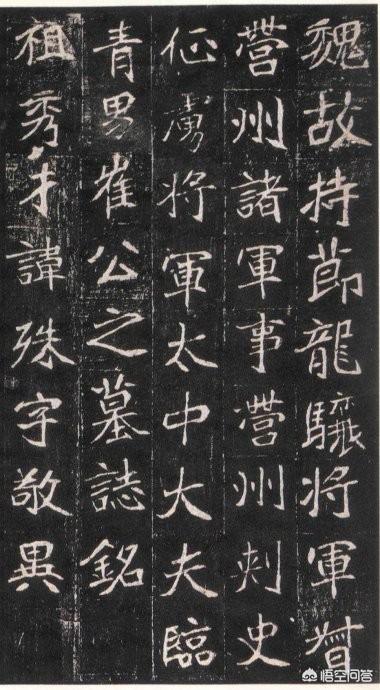 魏故持節龍驤将軍督
營州諸軍事營州刺史
征虜将軍太中大夫臨
青男崔公之墓誌銘
祖秀才諱殊字敬異
悟空问答